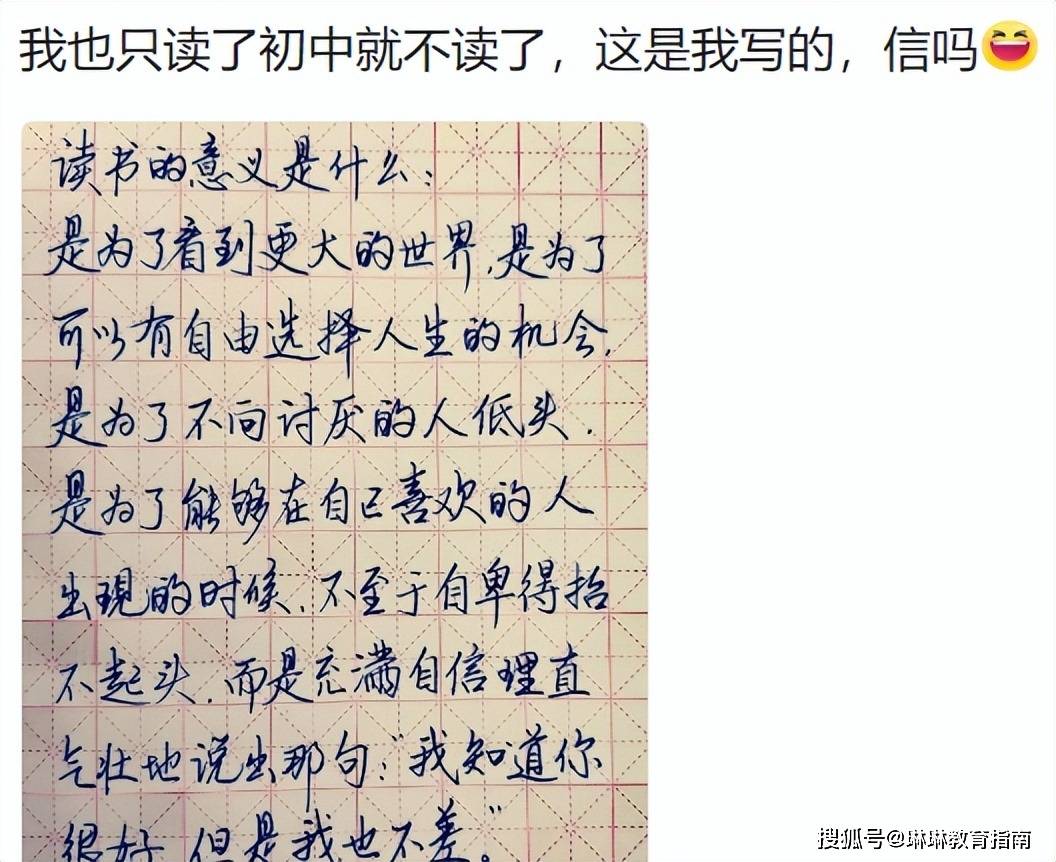 我也只读了初中就不读了，这是我写的，信吗😆
读书的意义是什么：
是为了看到更大的世界，是为了
可以有自由选择人生的机会，
是为了不向讨厌的人低头．
是为了能够在自己喜欢的人
出现的时候，不至于自卑得抬
不起头，而是充满自信理直
气壮地说出那句："我知道你
很好，但是我也不差。"
搜狐号@琳琳教育指南